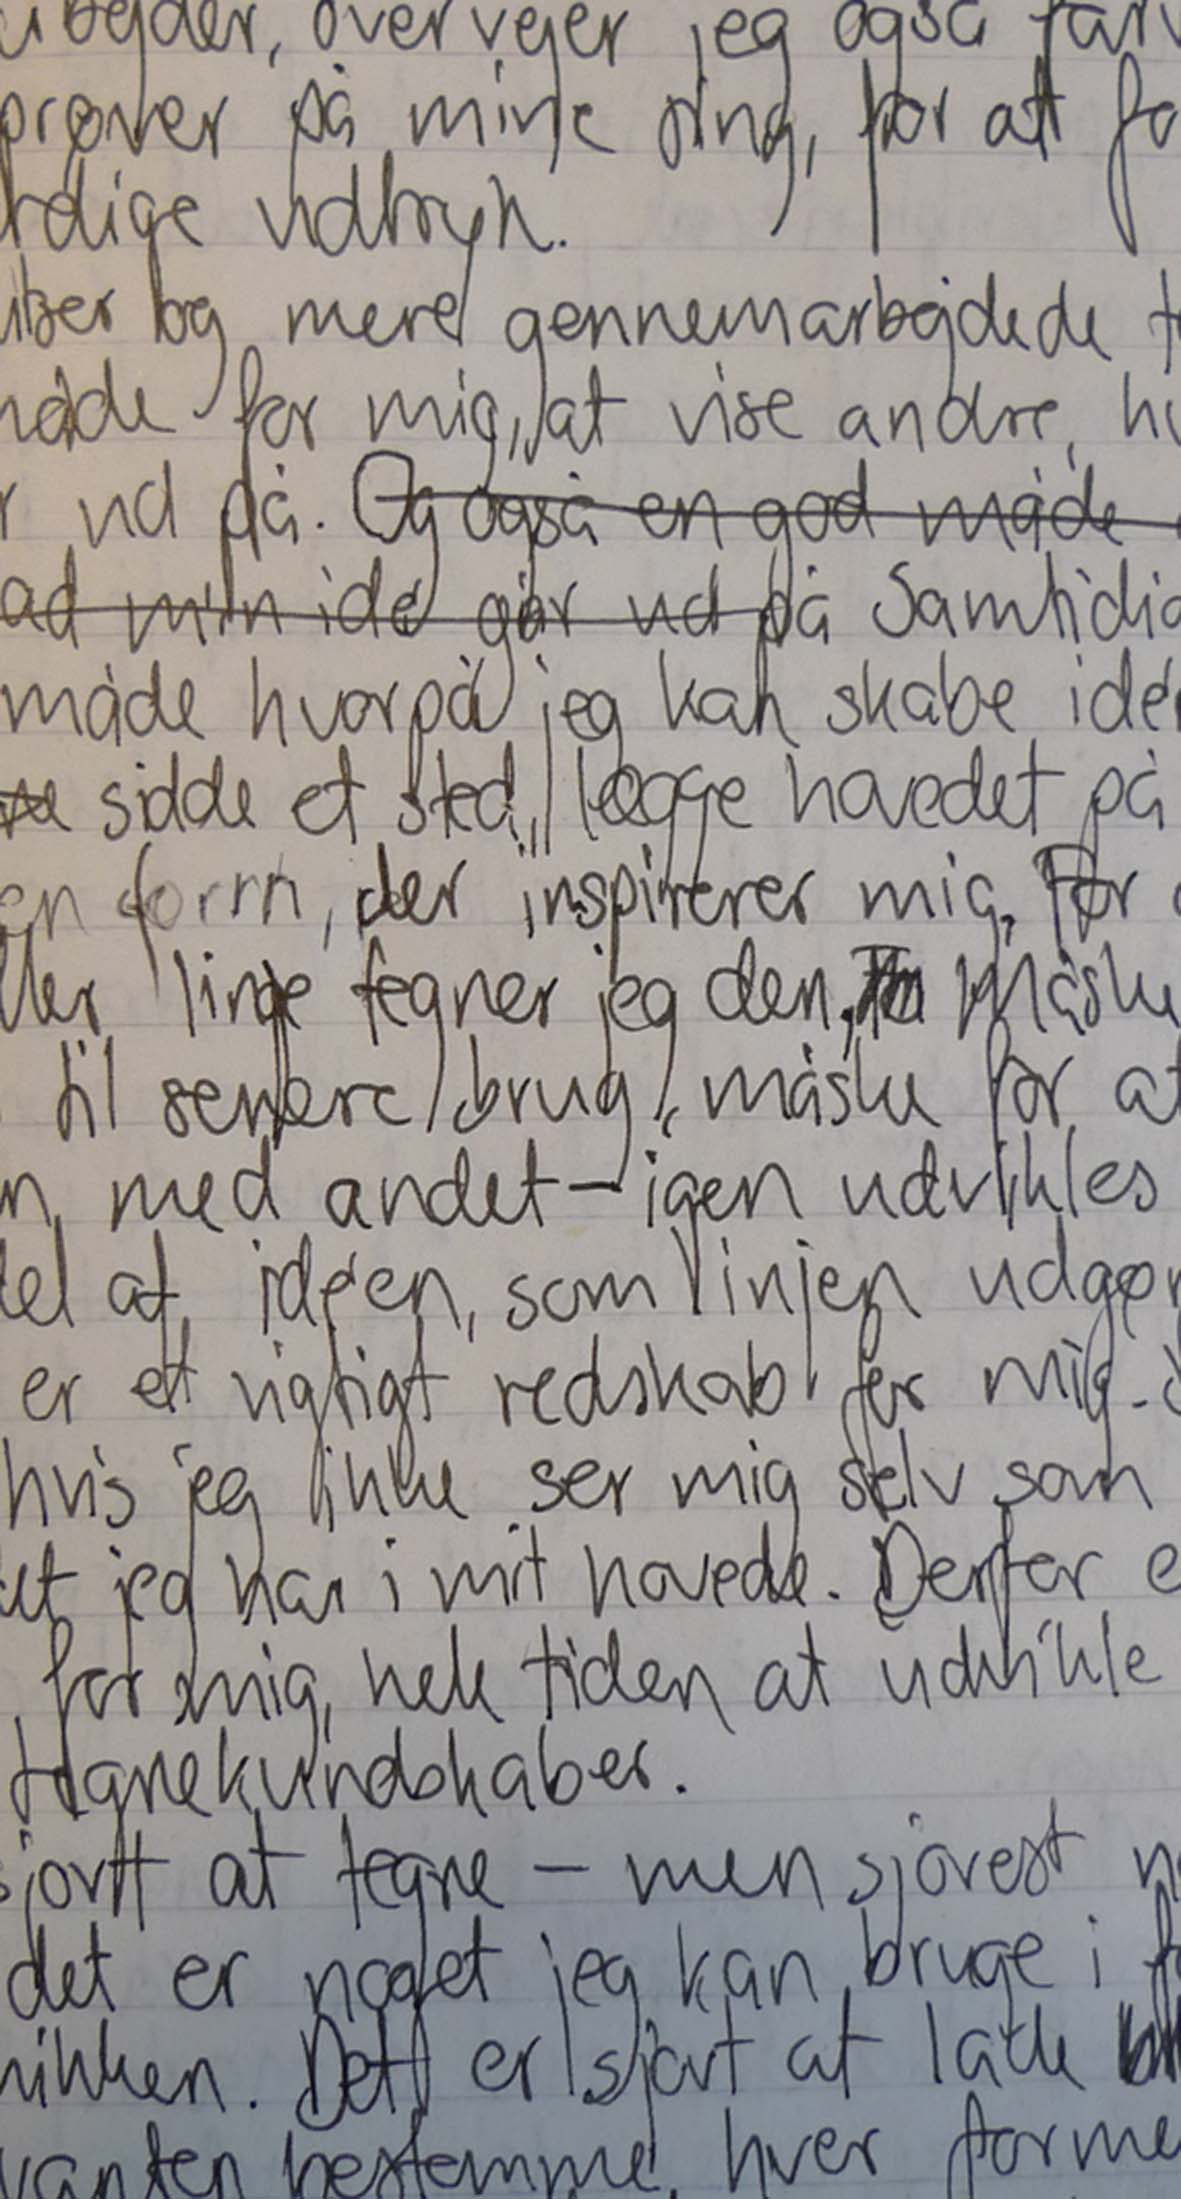 arbejder, overvejer jeg også farv
prøver på mine ting, for at få
rdige udtryk.
itser og mere gennemarbejdede t
måde for mig, at vise andre, hv
r ud på. Og også en god måde
ad min idé går ud på Samtidig
måde hvorpå jeg kan skabe idé
sidde et sted, lægge hovedet på
en form, der inspirerer mig. For
ller linje tegner jeg den, Måske
til senere brug, måske for at
n med andet – igen udvikles
del af idéen, som linjen udgør
er et vigtigt redskab for mig -
hvis jeg ikke ser mig selv som
det jeg har i mit hovede. Derfor e
for mig, hele tiden at udvikle
tegnekundskaber.
sjovt at tegne – men sjovest n
det er noget jeg kan bruge i f
nikken. Det er sjovt at lade
vanten bestemme, hver forme